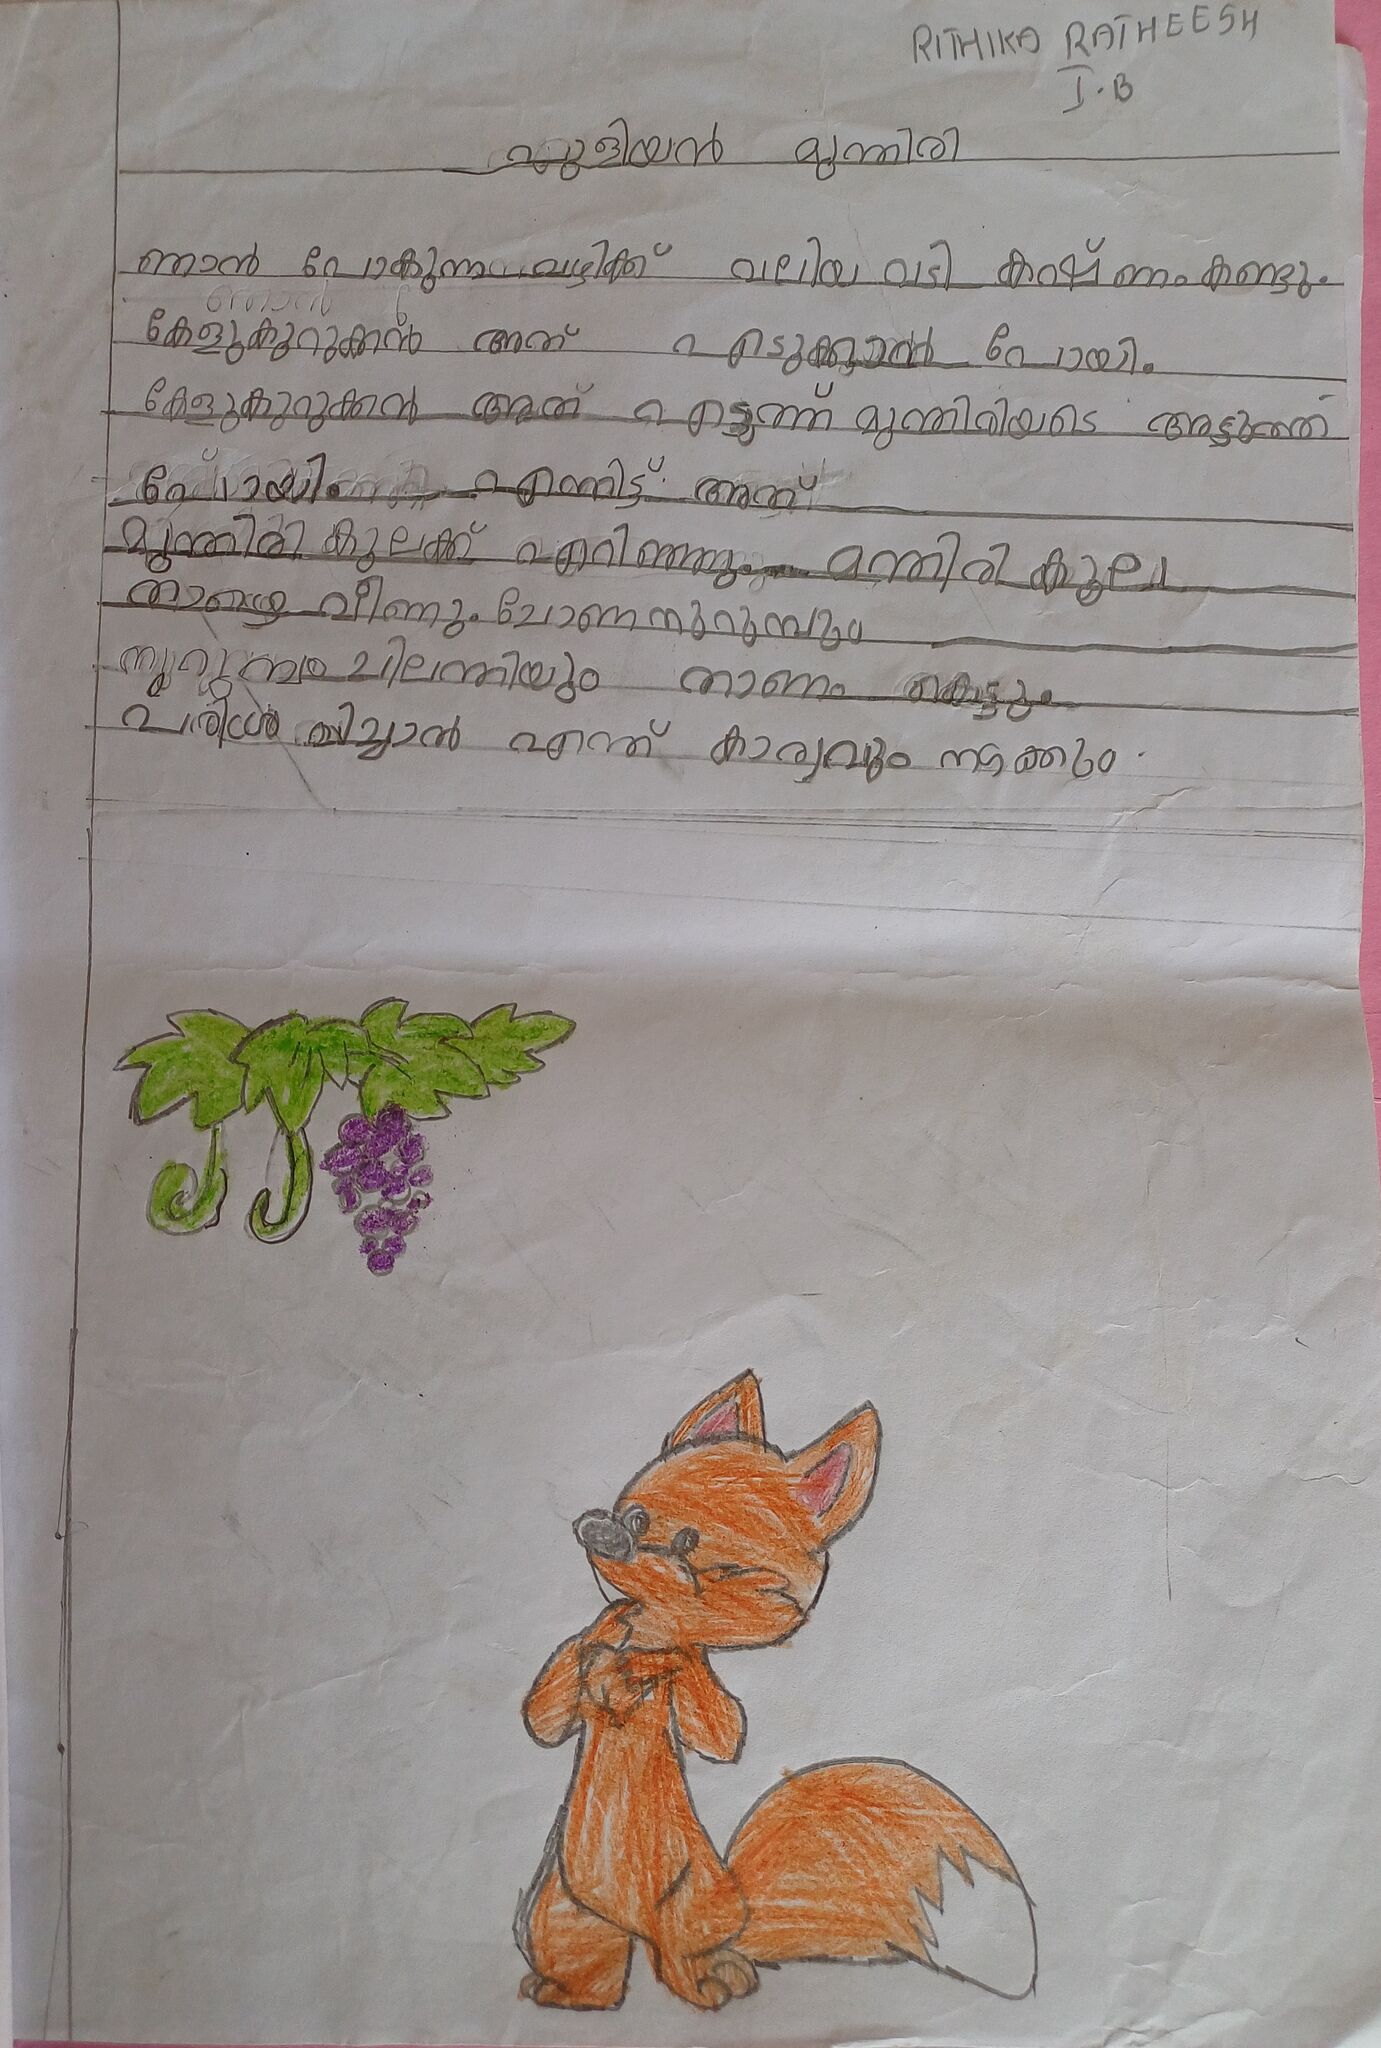 RITHIKA RATHEESH
I.B
പുളിയൻ മുന്തിരി
ഞാൻ പോകുന്ന വഴിക്ക് വലിയ വടി കഷ്ണം കണ്ടു.
കേളുകുറുക്കൻ അത് എടുക്കാൻ പോയി.
കേളുകുറുക്കൻ അത് എടുത്ത് മുന്തിരിയടെ അടുത്ത്
പോയി. എന്നിട്ട് അത്
മുന്തിരി കുലക്ക് എറിഞ്ഞു. മന്തിരി കുല
താഴെ വീണു. ചോണനുറുമ്പും
ചിലന്തിയും നാണം കെട്ടു.
പരിശ്രമിച്ചാൽ എന്ത് കാര്യവും നടക്കും.